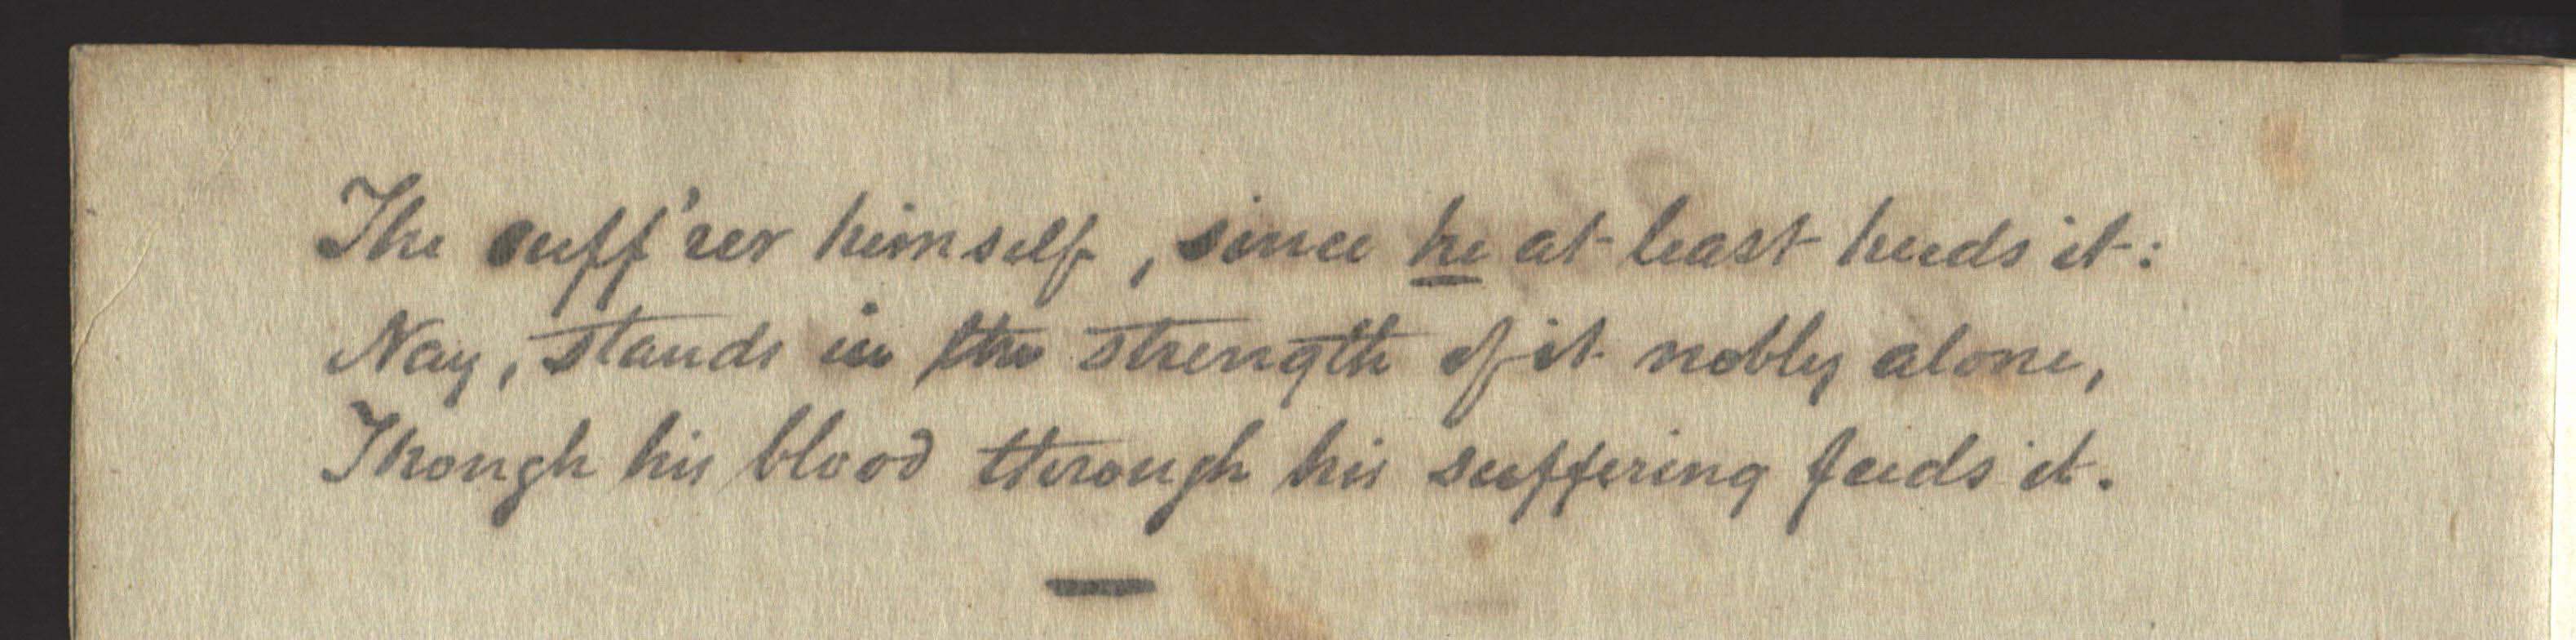 The suff'rer himself, since he at least heeds it:
Nay, stands in the strength of it nobly alone,
Though his blood through his suffering feeds it.